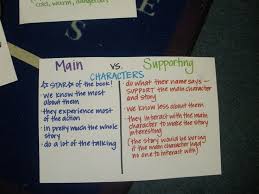 cold, warm, dangerous
Main vs. Supporting
CHARACTERS
☆STARS☆ of the book!
we know the most
about them
they experience most
of the action
in pretty much the whole
story
do a lot of the talking
do what their name says –
SUPPORT the main character
and story
we know less about them
they interact with the main
character to make the story
interesting
(the story would be boring
if the main character had
no one to interact with)